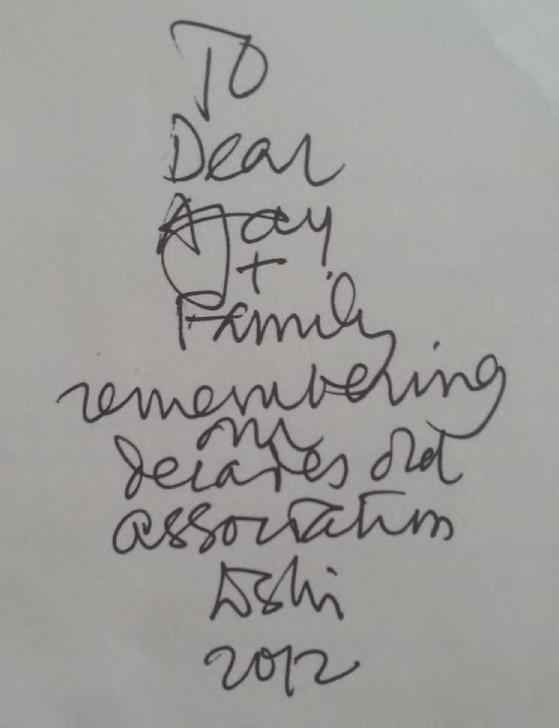 To
Dear
Ajay
+
Family
remembering
our
decades old
association
2012